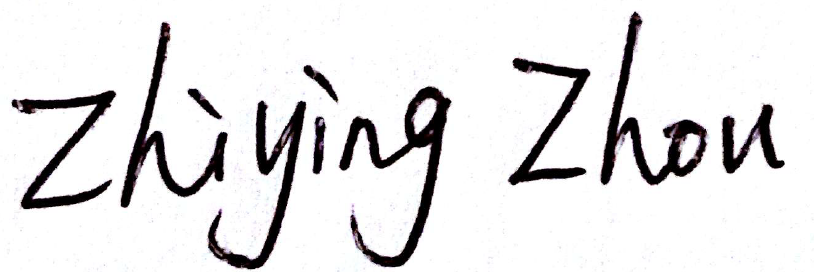 Zhiying Zhou